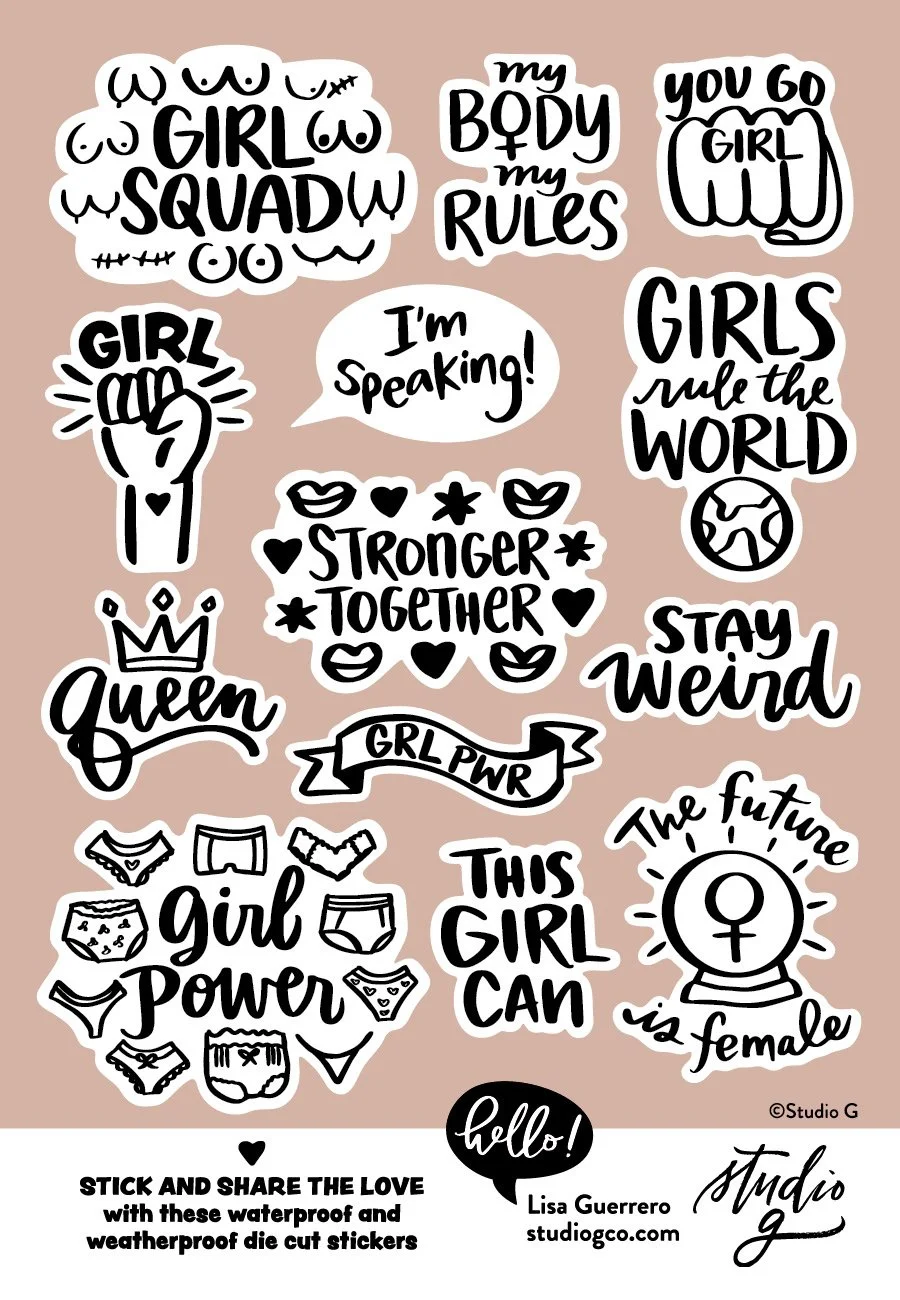 GIRL
SQUAD
my
BODY
my
RULES
YOU GO
GIRL
GIRL
I'm
speaking!
GIRLS
rule the
WORLD
STRONGER
TOGETHER
Queen
STAY
Weird
GRL PWR
girl
Power
THIS
GIRL
CAN
The future
is female
©Studio G
STICK AND SHARE THE LOVE
with these waterproof and
weatherproof die cut stickers
hello!
Lisa Guerrero
studiogco.com
studio
g